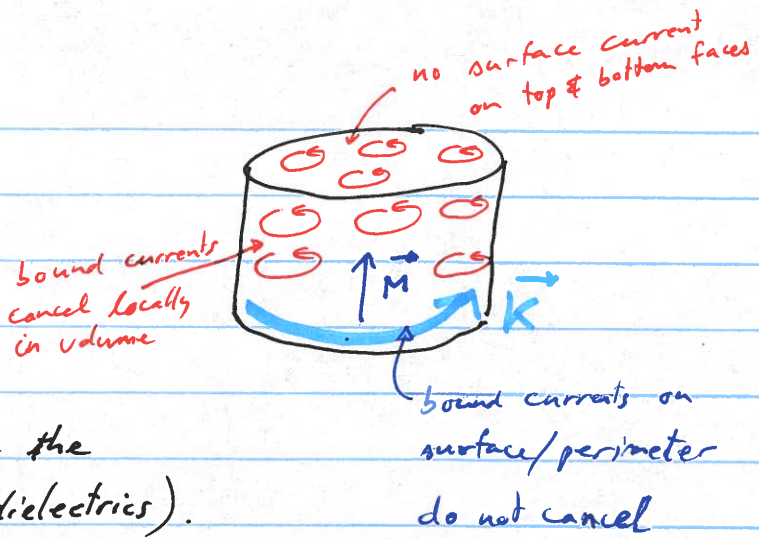 no surface current
on top & bottom faces
bound currents
cancel locally
in volume
M
K
bound currents on
surface/perimeter
do not cancel
the
dielectrics).